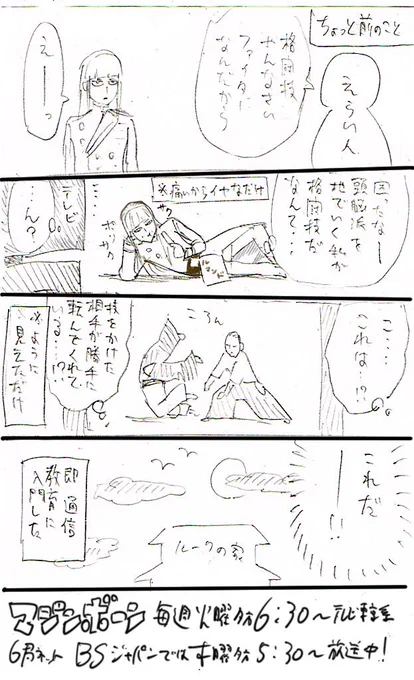 ちょっと前のこと
えらい人
格闘技
やんなさい
ファイターに
なんだから
えーーっ
困ったなー
頭脳派を
地でいく私が
格闘技だ
なんて…
※痛いからイヤなだけ
サク
サク
テレビ
…ん?
こ…
これは…!?
ころん
技をかけた
相手が勝手に
転んでくれて
いる…!?
※ように
見えただけ
これだ
ーー!!
ルークの家
即 通信
教育に
入門した
マジンボーン 毎週火曜夕方6:30〜テレビ東京系
6局ネット BSジャパンでは木曜夕方5:30〜放送中!